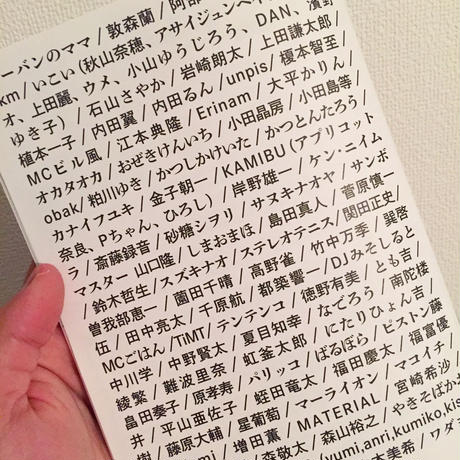 ーバンのママ / 敦森蘭 / 阿部
km / いこい（秋山奈穂、アサイジュンペイ
オ、上田麗、ウメ、小山ゆうじろう、DAN、濱野
ゆき子）/ 石山さやか / 岩崎朗太 / 上田謙太郎 /
植本一子 / 内田翼 / 内田るん / unpis / 榎本智至 /
MCビル風 / 江本典隆 / Erinam / 大平かりん /
オカタオカ / おぜきけんいち / 小田晶房 / 小田島等 /
obak / 粕川ゆき / かつしかけいた / かつとんたろう /
カナイフユキ / 金子朝一 / KAMIBU（アプリコット
奈良、Pちゃん、ひろし）/ 岸野雄一 / ケン・ニイム
ラ / 斎藤録音 / 砂糖シヲリ / サヌキナオヤ / サンボ
マスター 山口隆 / しまおまほ / 島田真人 / 菅原慎一
/ 鈴木哲生 / スズキナオ / ステレオテニス / 関田正史 /
曽我部恵一 / 園田千晴 / 高野雀 / 竹中万季 / 巽啓
伍 / 田中亮太 / 千原航 / 都築響一 / DJみそしると
MCごはん / TiMT / テンテンコ / 徳野有美 / とも吉 /
中川学 / 中野賢太 / 夏目知幸 / なでろう / 南陀楼
綾繁 / 難波里奈 / 虹釜太郎 / にたりひょん吉 /
畠田奏子 / 原孝寿 / パリッコ / ばるぼら / ピストン藤
井 / 平山亜佐子 / 蛭田竜太 / 福田慶太 / 福富優
樹 / 藤原大輔 / 星葡萄 / マーライオン / マコイチ /
mi / 増田薫 / MATERIAL / 宮崎希沙 /
森敬太 / 森山裕之 / やきそばか
yumi,anri,kumiko,kis
本美希 / ワダ